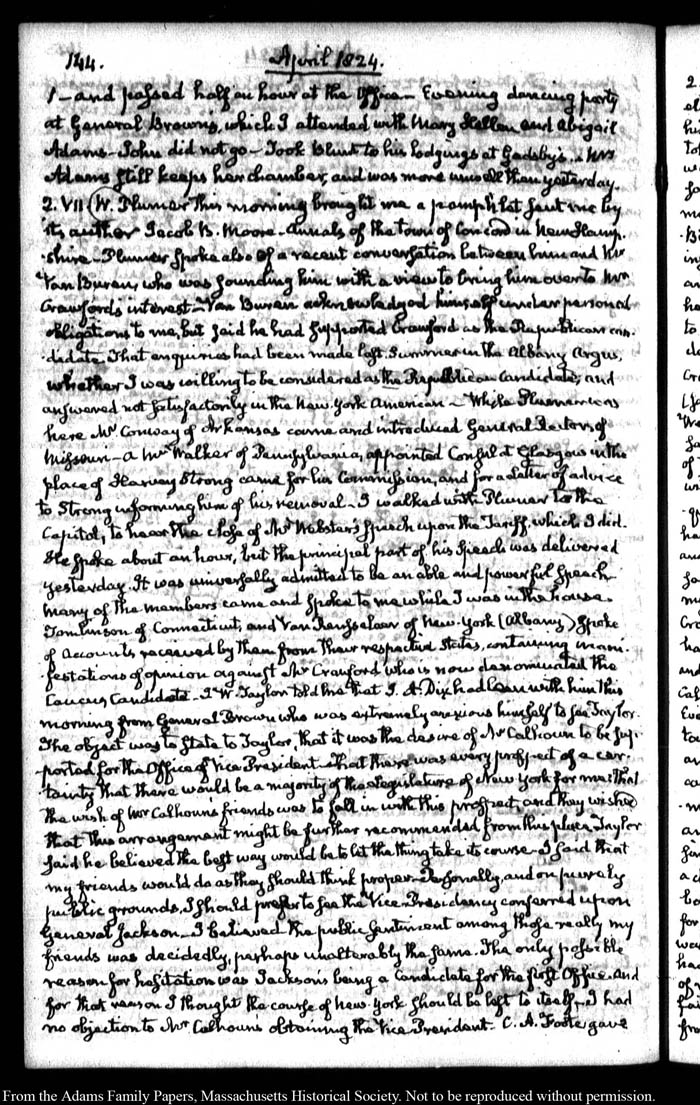 144. April 1824.
1 — and passed half an hour at the Office — Evening dancing party
at General Browns, which I attended with Mary Hellen and Abigail
Adams — John did not go — Took Blunt to his lodgings at Gadsby's. Mrs
Adams still keeps her chamber, and was more unwell than yesterday.
2. VII W. Plumer this morning brought me a pamphlet sent me by
its author Jacob B. Moore. Annals of the town of Concord in New Hamp-
-shire — Plumer spoke also of a recent conversation between him and Mr
Van Buren, who was sounding him with a view to bring him over to Mr
Crawford's interest — Van Buren acknowledged himself under personal
obligations to me, but said he had supported Crawford as the Republican can-
-didate. That enquiries had been made last Summer in the Albany Argus,
whether I was willing to be considered as the Republican Candidate; and
answered not satisfactorily in the New-York American — While Plumer was
here Mr Conway of Arkansas came and introduced General
Missouri — A Mr Walker of Pennsylvania, appointed Consul at Glasgow in the
place of Harvey Strong came for his Commission, and for a Letter of advice
to Strong informing him of his removal — I walked with Plumer to the
Capitol, to hear the close of Mr Webster's Speech upon the Tariff, which I did.
He spoke about an hour, but the principal part of his Speech was delivered
yesterday. It was universally admitted to be an able and powerful Speech
Many of the members came and spoke to me while I was in the house.
Tomlinson of Connecticut, and Van Rensselaer of New-York (Albany) spoke
of accounts received by them from their respective States, containing mani-
-festations of opinion against Mr Crawford who is now denominated the
Caucus Candidate — J. W. Taylor told me that J. A. Dix had been with him this
morning from General Brown who was extremely anxious himself to see Taylor.
The object was to state to Taylor, that it was the desire of Mr Calhoun to be sup-
-ported for the Office of Vice President — That there was every prospect of a cer-
-tainty that there would be a majority of the Legislature of New York for me: that
the wish of Mr Calhoun's friends was to fall in with this prospect, and they wished
that this arrangement might be further recommended from this place. Taylor
said he believed the best way would be to let the thing take its course — I said that
my friends would do as they should think proper — Personally, and on purely
public grounds, I should prefer to see the Vice-Presidency conferred upon
General Jackson — I believed the public sentiment among those really my
friends was decidedly, perhaps unalterably the same. The only possible
reason for hesitation was Jackson's being a candidate for the first Office. And
for that reason I thought the course of New York should be left to itself — I had
no objection to Mr Calhouns obtaining the Vice President. C. A. Foote gave
From the Adams Family Papers, Massachusetts Historical Society. Not to be reproduced without permission.